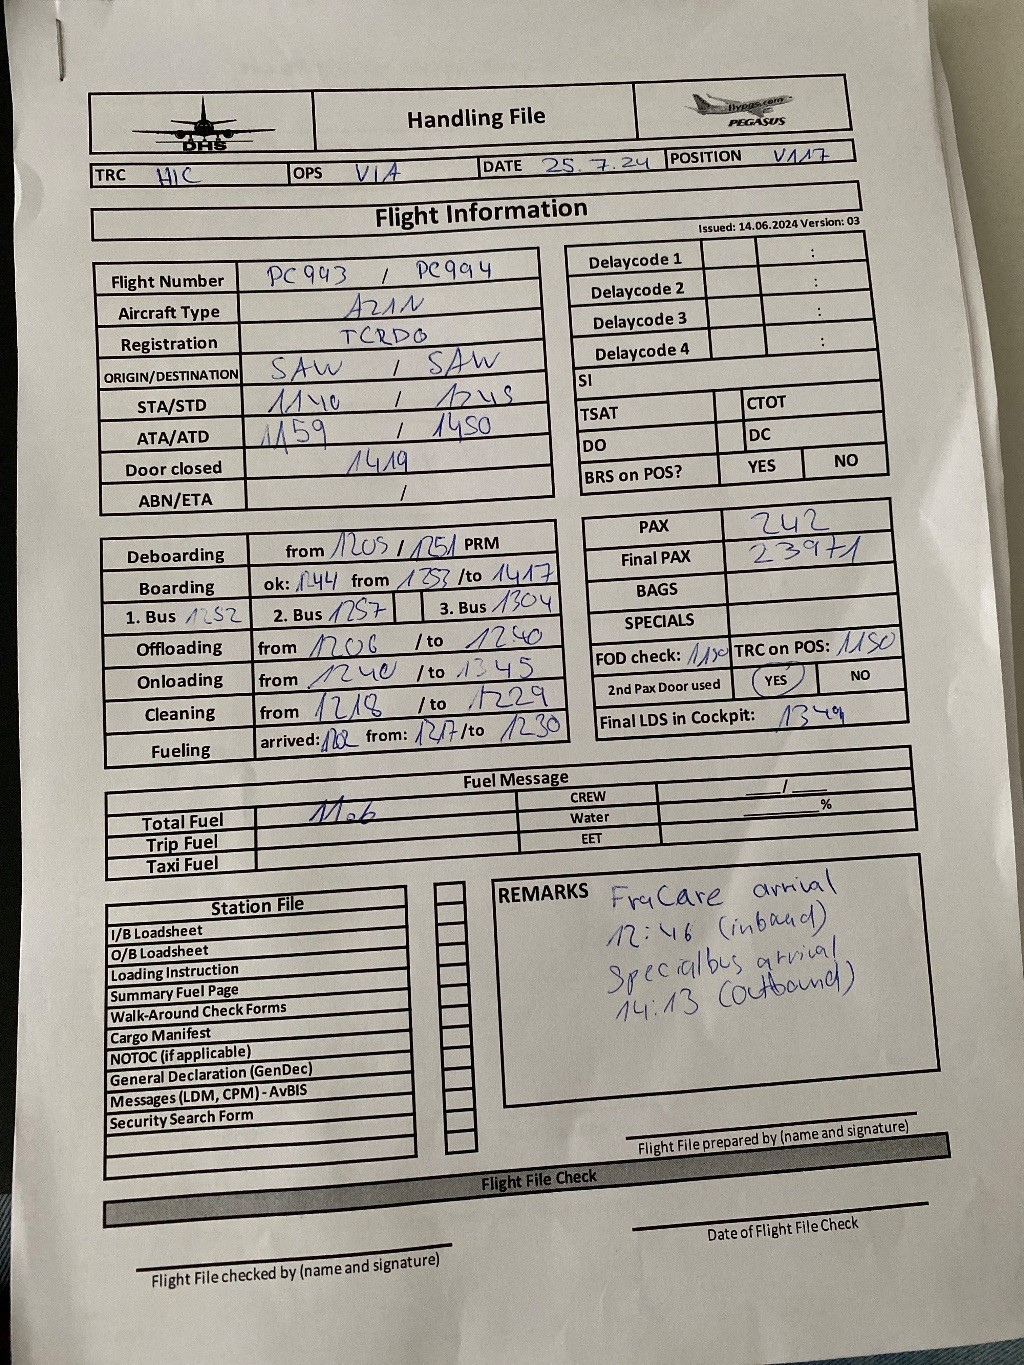 DHS
Handling File
flypgs.com
PEGASUS
TRC HIC OPS VIA DATE 25.7.24 POSITION V117
Flight Information
Issued: 14.06.2024 Version: 03
Flight Number PC993 / PC994
Aircraft Type A21N
Registration TCRDO
ORIGIN/DESTINATION SAW / SAW
STA/STD 1140 / 1245
ATA/ATD 1159 / 1450
Door closed 1419
ABN/ETA /
Delaycode 1 :
Delaycode 2 :
Delaycode 3 :
Delaycode 4 :
SI
TSAT CTOT
DO DC
BRS on POS? YES NO
Deboarding from 1205 / 1251 PRM
Boarding ok: 1244 from 1253 /to 1417
1. Bus 1252 2. Bus 1257 3. Bus 1304
Offloading from 1206 / to 1240
Onloading from 1240 / to 1345
Cleaning from 1218 / to 1229
Fueling arrived: 1202 from: 1217 /to 1230
PAX 242
Final PAX 239+1
BAGS
SPECIALS
FOD check: 1150 TRC on POS: 1150
2nd Pax Door used YES NO
Final LDS in Cockpit: 1349
Fuel Message
Total Fuel 11.6 CREW ___/___
Trip Fuel Water ______%
Taxi Fuel EET
Station File
I/B Loadsheet
O/B Loadsheet
Loading Instruction
Summary Fuel Page
Walk-Around Check Forms
Cargo Manifest
NOTOC (if applicable)
General Declaration (GenDec)
Messages (LDM, CPM) - AvBIS
Security Search Form
REMARKS FraCare arrival
12:46 (inbound)
Specialbus arrival
14:13 (Outbound)
Flight File prepared by (name and signature)
Flight File Check
Date of Flight File Check
Flight File checked by (name and signature)